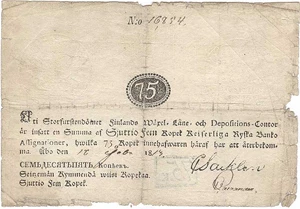 N:o 16854
75
Uti Storfurstendömet Finlands Wäxel- Låne- och Depositions-Contor
är insatt en Summa af Sjuttio Fem Kopek Keiserliga Ryska Banko
Assignationer, hwilka 75 Kopek innehafwaren häraf har att återbekomma.
Åbo den 18
СЕМЬДЕСЯТЪПЯТЬ Копѣекъ.
Seitzemän Kymmendä wiisi Kopekaa.
Sjuttio Fem Kopek.